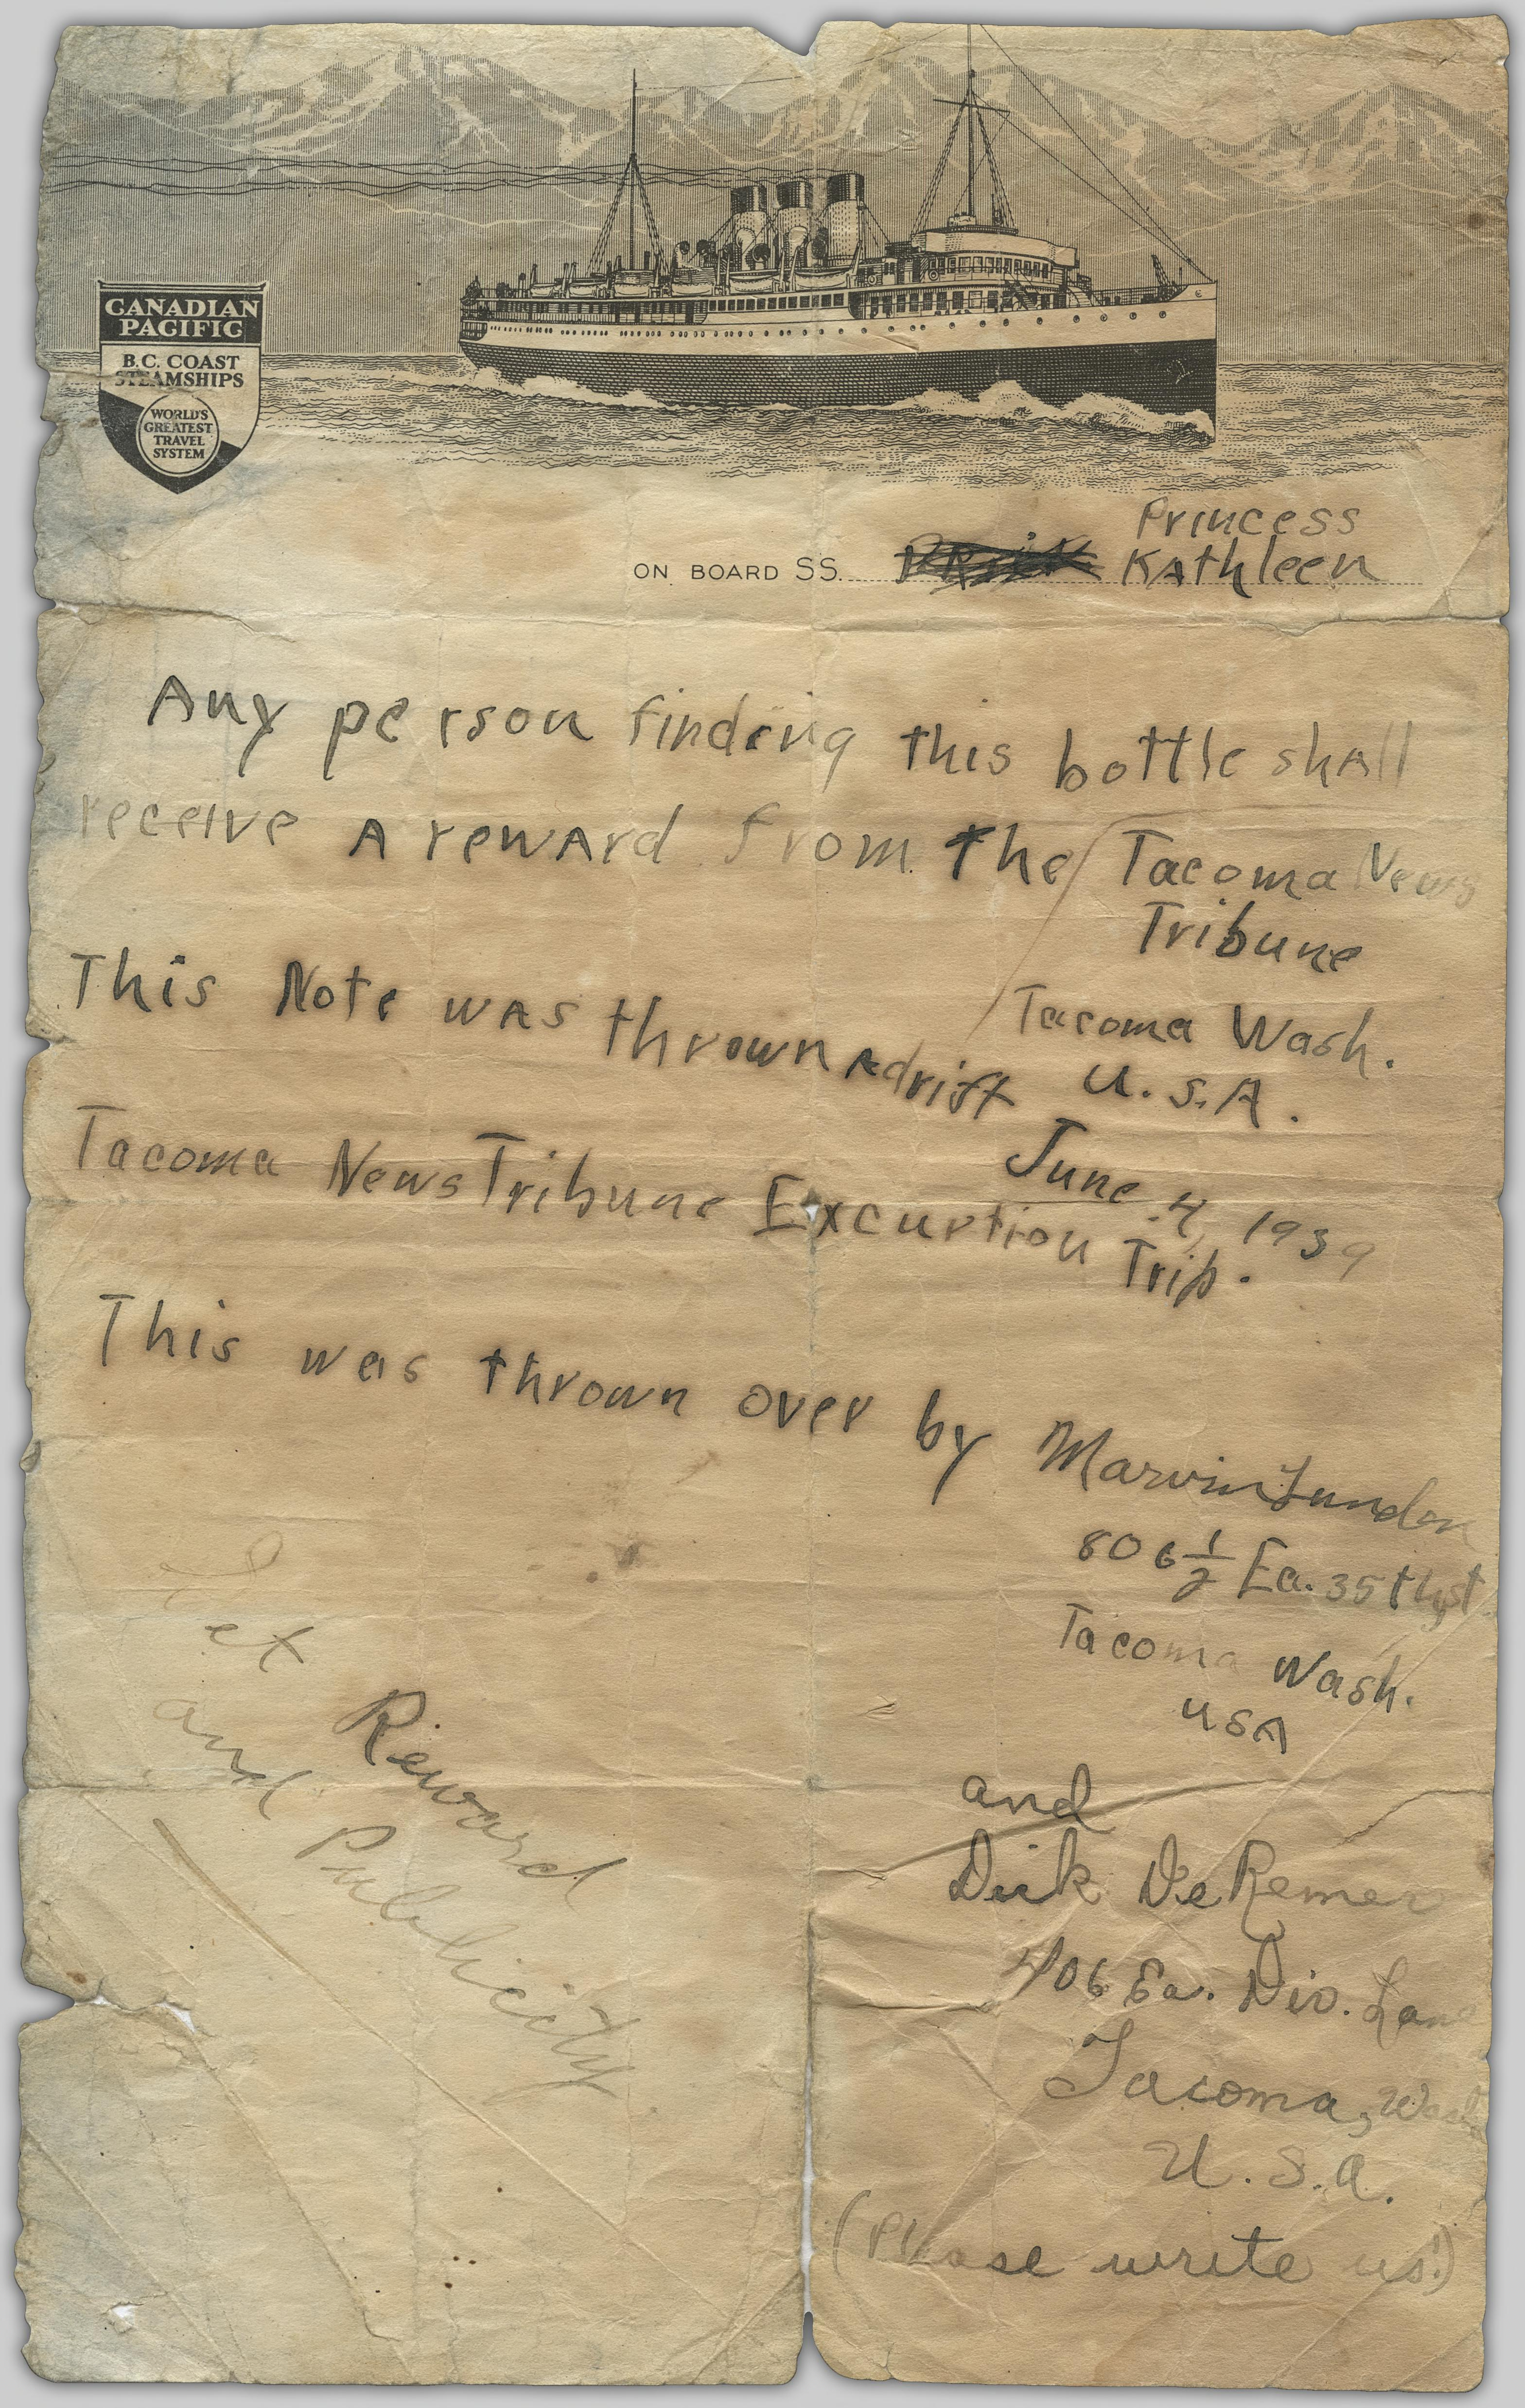 CANADIAN
PACIFIC
B.C. COAST
STEAMSHIPS
WORLD'S
GREATEST
TRAVEL
SYSTEM
ON BOARD SS. Princess
Kathleen
Any person finding this bottle shall
receive A reward from the Tacoma News
Tribune
Tacoma Wash.
U.S.A.
This Note was thrown Adrift
June 4, 1939
Tacoma News Tribune Excurtion
Trip.
This was thrown over by Marvin Lunden
806 1/2 Ea. 35th St.
Tacoma Wash.
USA
and
Dick DeRemer
406 Ea. Div. Lane
Tacoma, Wash
U.S.A.
(Please write us!)
Get
Reward
and
Publicity